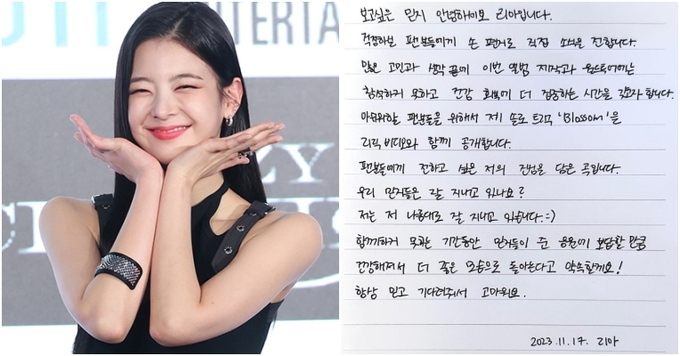 ENTERTA
ZY
보고싶은 믿지 안녕하세요 리아입니다.
걱정하실 팬분들에게 손 편지로 직접 소식을 전합니다.
많은 고민과 생각 끝에 이번 앨범 제작과 월드투어에는
참석하지 못하고 건강 회복에 더 집중하는 시간을 갖고자 합니다.
아쉬워할 팬분들을 위해서 제 솔로 트랙 'Blossom'을
리릭비디오와 함께 공개합니다.
팬분들에게 전하고 싶은 저의 진심을 담은 곡입니다.
우리 믿지들은 잘 지내고 있나요?
저는 저 나름대로 잘 지내고 있습니다.=)
함께하지 못했던 기간동안 믿지들이 준 응원에 보답할 만큼
건강해져서 더 좋은 모습으로 돌아온다고 약속할게요!
항상 믿고 기다려줘서 고마워요.
2023.11.17. 리아